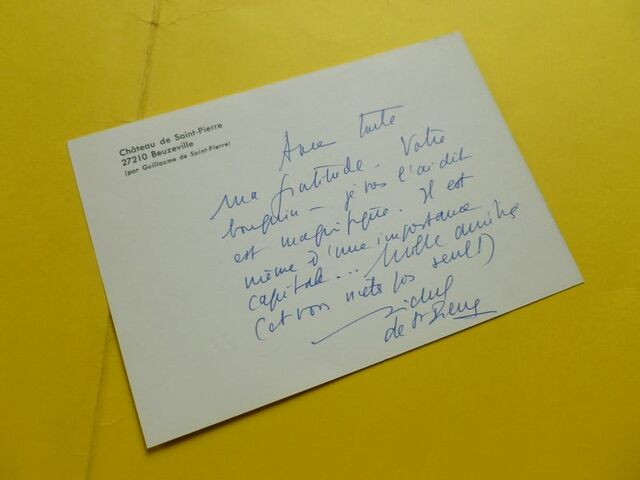 Château de Saint-Pierre
27210 Beuzeville
(par Guillaume de Saint-Pierre)
Avec toute
ma gratitude. Votre
bouquin – je vous l'ai dit
est magnifique. Il est
même d'une importance
capitale... Mille amitiés
(et vous n'êtes pas seul!)
Michel
de St Pierre